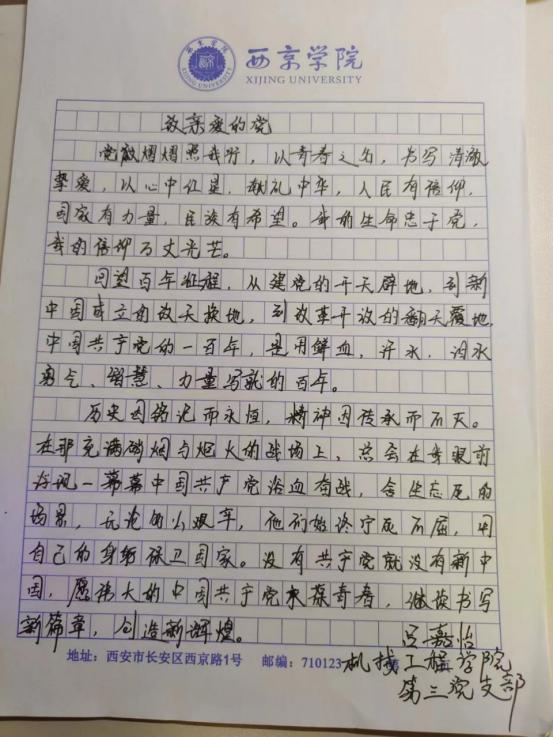 西京学院
XIJING UNIVERSITY
致亲爱的党
党徽熠熠照我行，以青春之名，书写清澈
挚爱，以心中红星，献礼中华，人民有信仰，
国家有力量，民族有希望。我的生命忠于党，
我的信仰万丈光芒。
回望百年征程，从建党的开天辟地，到新
中国成立的改天换地，到改革开放的翻天覆地，
中国共产党的一百年，是用鲜血，汗水，泪水
勇气、智慧、力量写就的百年。
历史因铭记而永恒，精神因传承而不灭。
在那充满硝烟与炮火的战场上，总会在我眼前
浮现一幕幕中国共产党浴血奋战，舍生忘死的
场景，无论多么艰辛，他们始终宁死不屈，用
自己的身躯保卫国家。没有共产党就没有新中
国，愿伟大的中国共产党永葆青春，继续书写
新篇章，创造新辉煌。
吕嘉怡
地址：西安市长安区西京路1号 邮编：710123
机械工程学院
第三党支部